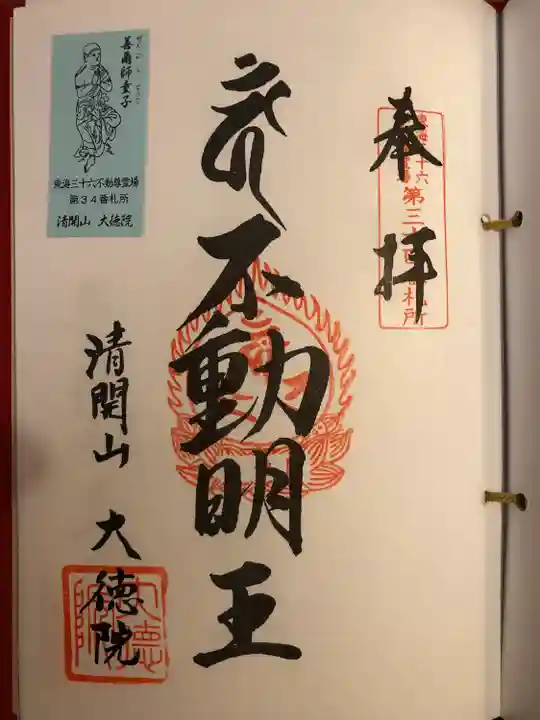 奉拝
第三十四番札所
不動明王
清閑山 大徳院
善爾師童子
東海三十六不動尊霊場
第34番札所
清閑山 大徳院